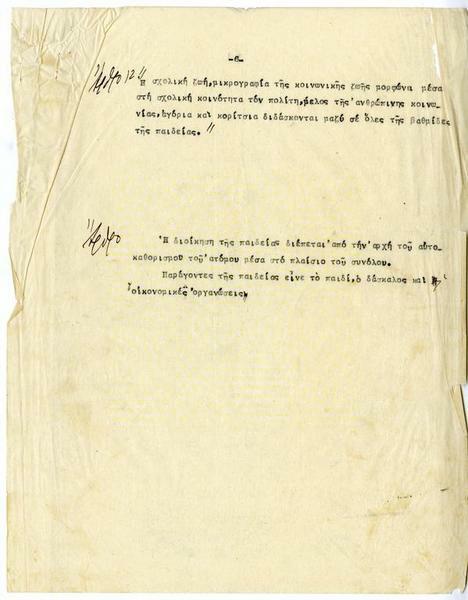 -6-
Ἄρθρο 12 "Η σχολική ζωή,μικρογραφία τῆς κοινωνικῆς ζωῆς μορφώνει μέσα
στή σχολική κοινότητα τόν πολίτη,μέλος τῆς ἀνθρώπινης κοινω-
νίας,ἀγόρια καί κορίτσια διδάσκονται μαζύ σέ ὅλες τῆς βαθμίδες
τῆς παιδείας."
Ἄρθρο
Ἡ διοίκηση τῆς παιδείας διέπεται ἀπό τήν ἀρχή τοῦ αὐτο-
καθορισμοῦ τοῦ ἀτόμου μέσα στό πλαίσιο τοῦ συνόλου.
Παράγοντες τῆς παιδείας εἶνε τό παιδί,ὁ δάσκαλος καί
οἰκονομικές ὀργανώσεις